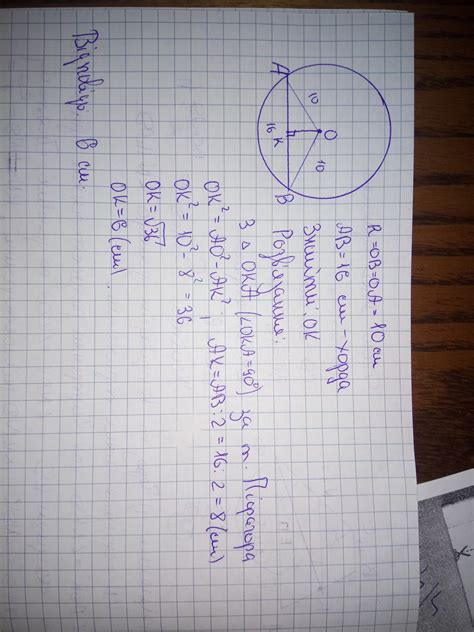 A
10
O
16
K
10
B
R=OB=OA=10 см
AB=16 см - хорда
Знайти: OK
Розв'язання:
З Δ OKA (∠OKA=90°) за т. Піфагора
OK²=AO²-AK²; AK=AB:2=16:2=8(см)
OK²=10²-8²=36
OK=√36
OK=6(см).
Відповідь: 6 см.